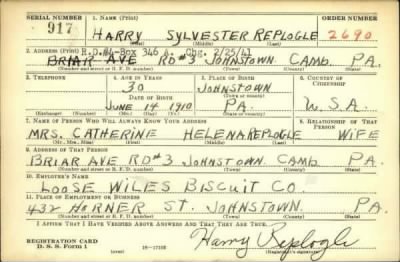 SERIAL NUMBER 1. NAME (Print) ORDER NUMBER
917 HARRY SYLVESTER REPLOGLE 2690
(First) (Middle) (Last)
2. ADDRESS (Print) R.D.#4-Box 346 A. Chg. 2/25/41
BRIAR AVE RD#3 JOHNSTOWN CAMB. PA.
(Number and street or R. F. D. number) (Town) (County) (State)
3. TELEPHONE 4. AGE IN YEARS 5. PLACE OF BIRTH 6. COUNTRY OF CITIZENSHIP
30 JOHNSTOWN
DATE OF BIRTH (Town or county)
JUNE 14 1910 PA. U.S.A.
(Exchange) (Number) (Mo.) (Day) (Yr.) (State or country)
7. NAME OF PERSON WHO WILL ALWAYS KNOW YOUR ADDRESS 8. RELATIONSHIP OF THAT PERSON
MRS. CATHERINE HELENA REPLOGLE WIFE
(Mr., Mrs., Miss) (First) (Middle) (Last)
9. ADDRESS OF THAT PERSON
BRIAR AVE RD#3 JOHNSTOWN CAMB. PA.
(Number and street or R. F. D. number) (Town) (County) (State)
10. EMPLOYER'S NAME
LOOSE WILES BISCUIT CO.
11. PLACE OF EMPLOYMENT OR BUSINESS
432 HORNER ST. JOHNSTOWN. PA.
(Number and street or R. F. D. number) (Town) (County) (State)
I AFFIRM THAT I HAVE VERIFIED ABOVE ANSWERS AND THAT THEY ARE TRUE.
REGISTRATION CARD
D. S. S. Form 1 16—17105 Harry Replogle
(Registrant's signature)